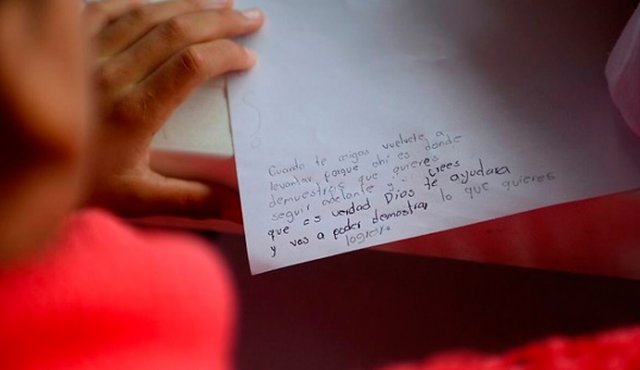 Cuando te caigas vuelvete a
levantar, porque ahi es donde
demuestras que quieres
seguir adelante y si crees
que es verdad Dios te ayudara
y vas a poder demostrar lo que quieres
lograr.